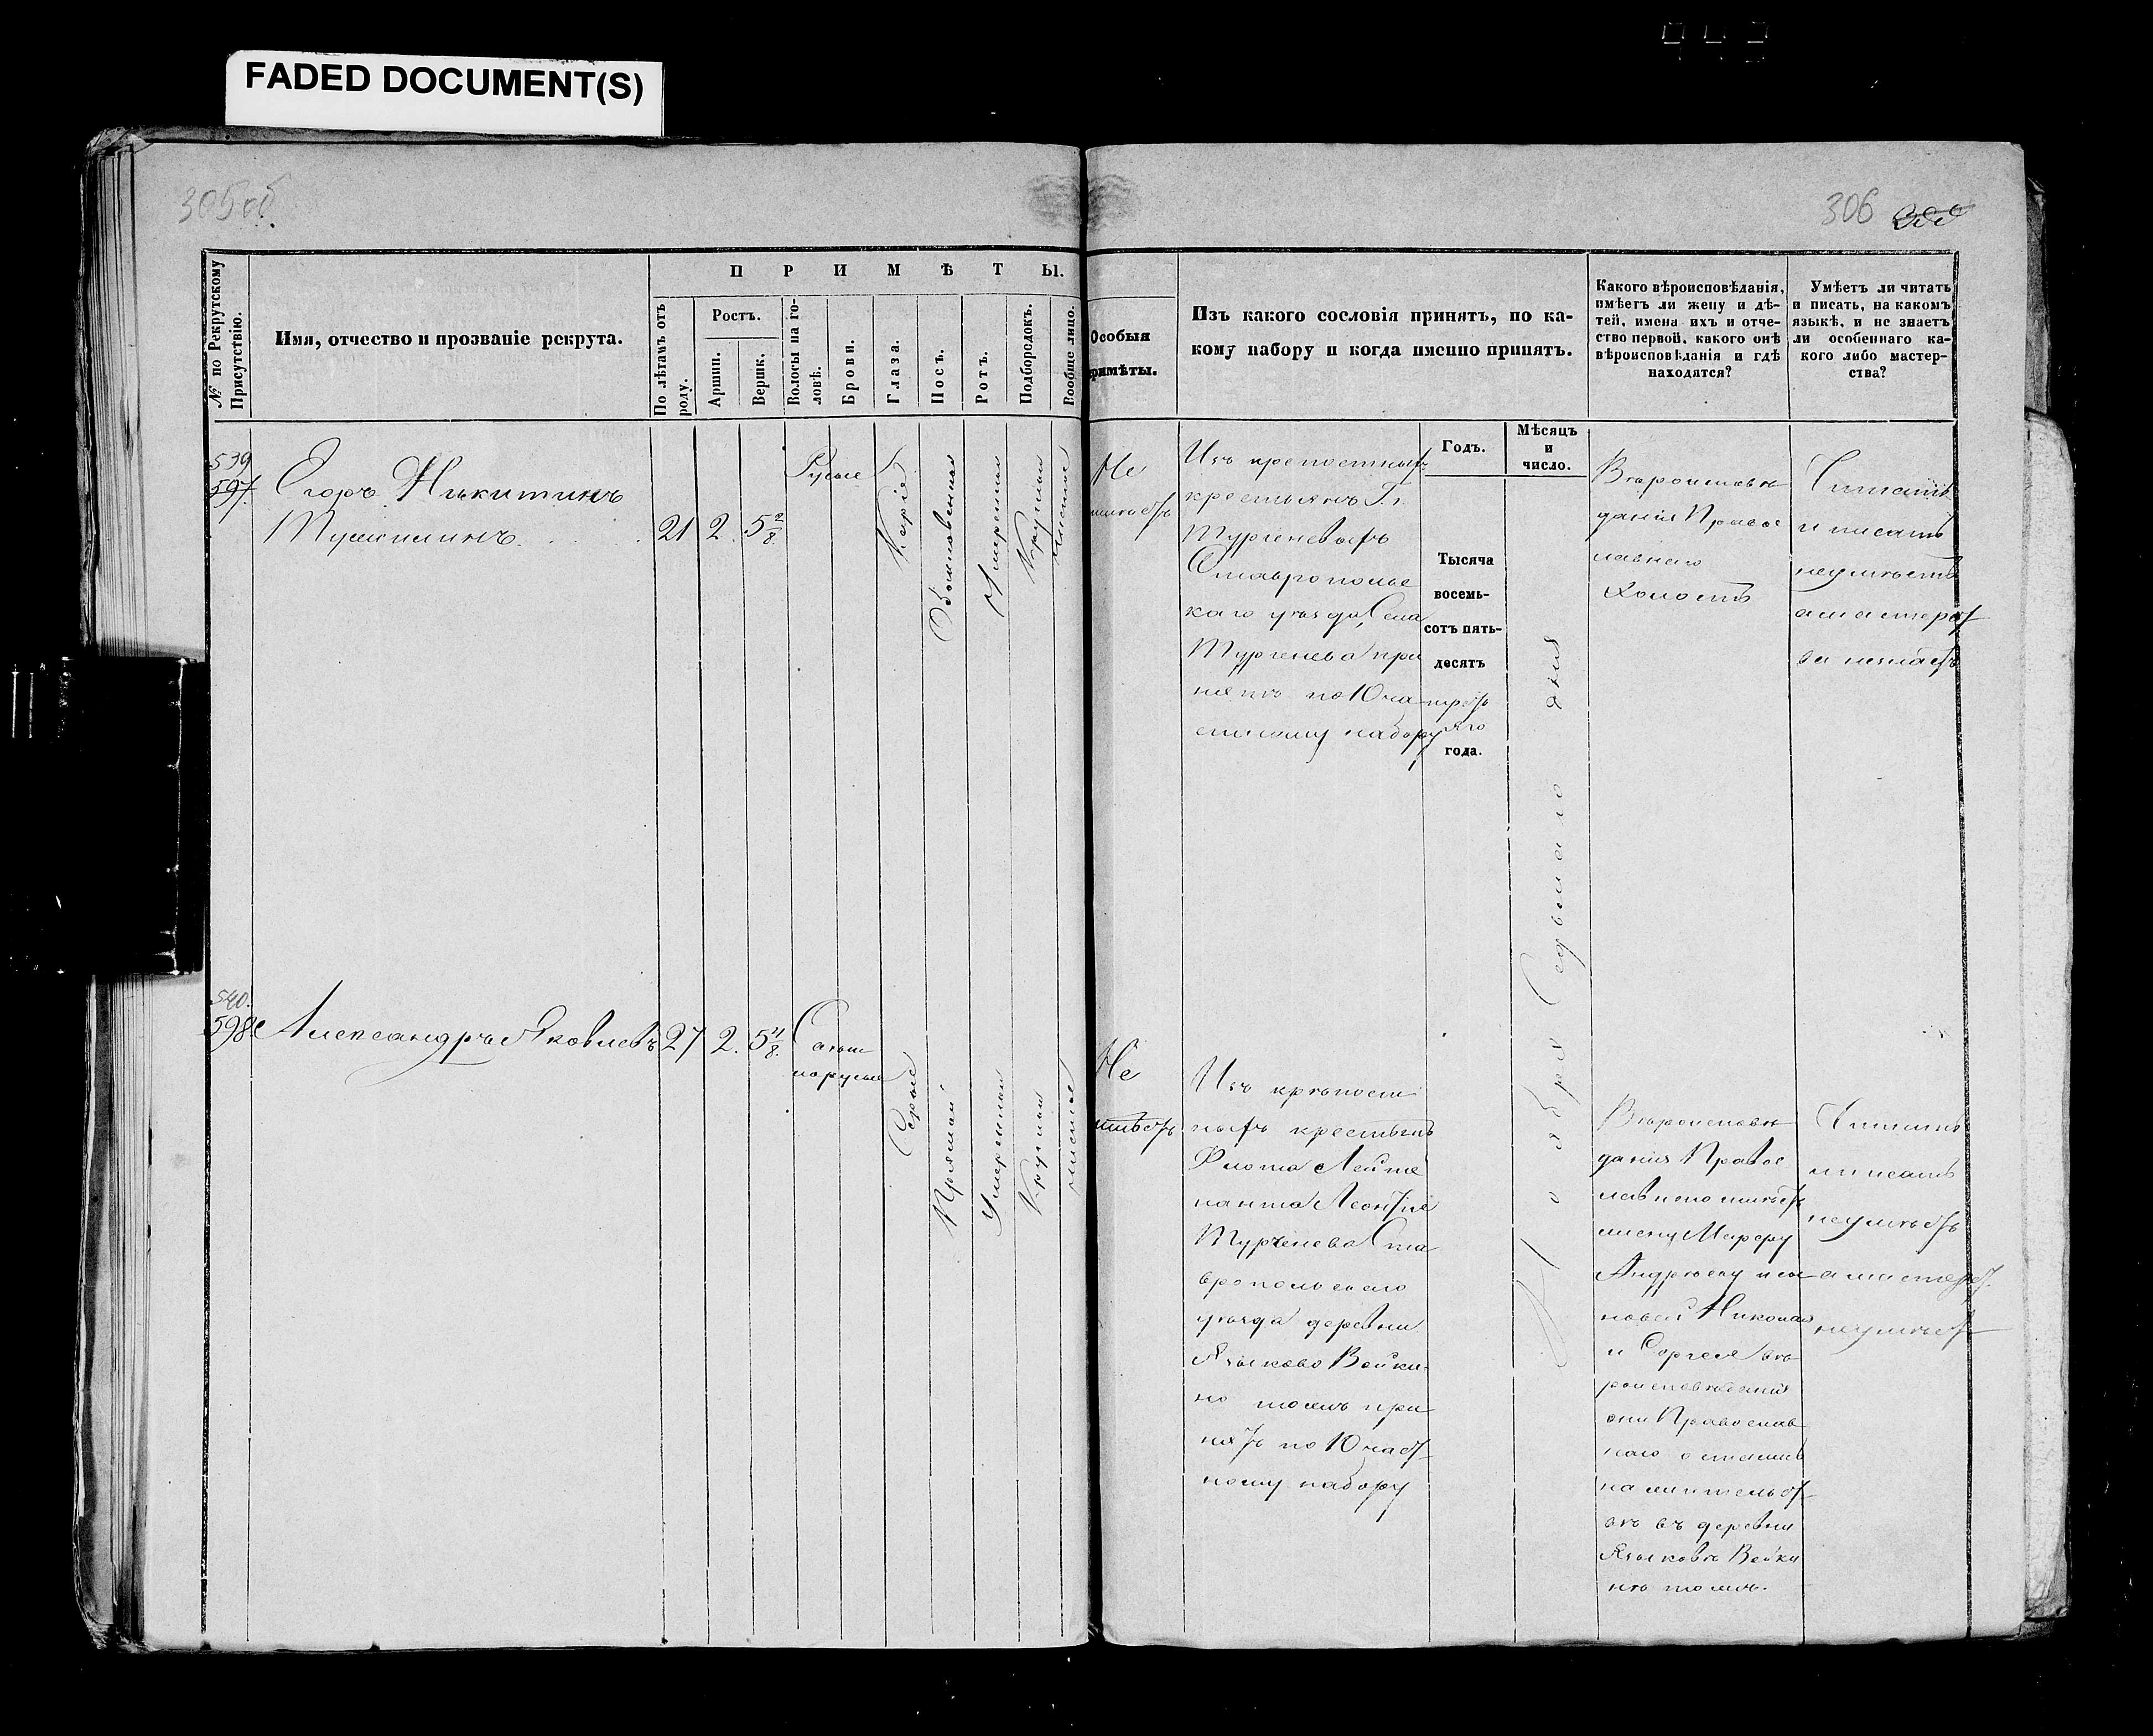 FADED DOCUMENT(S)
305об.
306
П Р И М Ѣ Т Ы.
№ по Рекрутскому Присутствію.
Имя, отчество и прозваніе рекрута.
По лѣтамъ отъ роду.
Ростъ.
Аршин.
Вершк.
Волосы на головѣ.
Брови.
Глаза.
Носъ.
Ротъ.
Подбородокъ.
Вообще лицо.
Особыя
примѣты.
Изъ какого сословія принятъ, по ка-
кому набору и когда именно принятъ.
Какого вѣроисповѣданія,
имѣетъ ли жену и дѣ-
тей, имена ихъ и отче-
ство первой, какого онѣ
вѣроисповѣданія и гдѣ
находятся?
Умѣетъ ли читать
и писать, на какомъ
языкѣ, и не знаетъ
ли особеннаго ка-
кого либо мастер-
ства?
Годъ.
Мѣсяцъ
и
число.
539
597.
Егоръ Никитинъ
21 2. 5 2/8.
Русые
Каріе
Обыкновенный
Умеренный
Круглый
чистое
Не
имѣетъ
Изъ крепостныхъ
крестьянъ Г.г.
Тургеневыхъ
Ставропольс
каго уѣзда, Села
Тургенева при
нятъ по 10 ча
стному набору
Тысяча
восемь-
сотъ пять-
десятъ
треть
яго
года.
Ноября Седьмаго дня
Вѣроисповѣ
данія Правос
лавнаго
Холостъ
Читать
и писать
неумѣетъ
а мастерст
ва незнаетъ
540.
598.
Александръ Яковлевъ
27 2. 5 4/8.
Светло
русые
Серые
Прямой
Умеренный
Круглый
чистое
Не
имѣетъ
Изъ крѣпост
ныхъ крестьянъ
Флота Лейте
нанта Леонтія
Тургенева Ста
вропольскаго
уѣзда деревни
Языково Войки-
но тожъ при
нятъ по 10 част
ному набору
Вѣроисповѣ
данія Правос
лавнаго имѣетъ
жену Марфу
Андрѣеву и сы
новей Николая
и Сергея вѣ
роисповѣданія
они Православ
наго остались
на жительст
вѣ въ деревни
Языковѣ Войки
нѣ тожъ.
Читать
и писать
неумѣетъ
а мастерст.
неумѣет